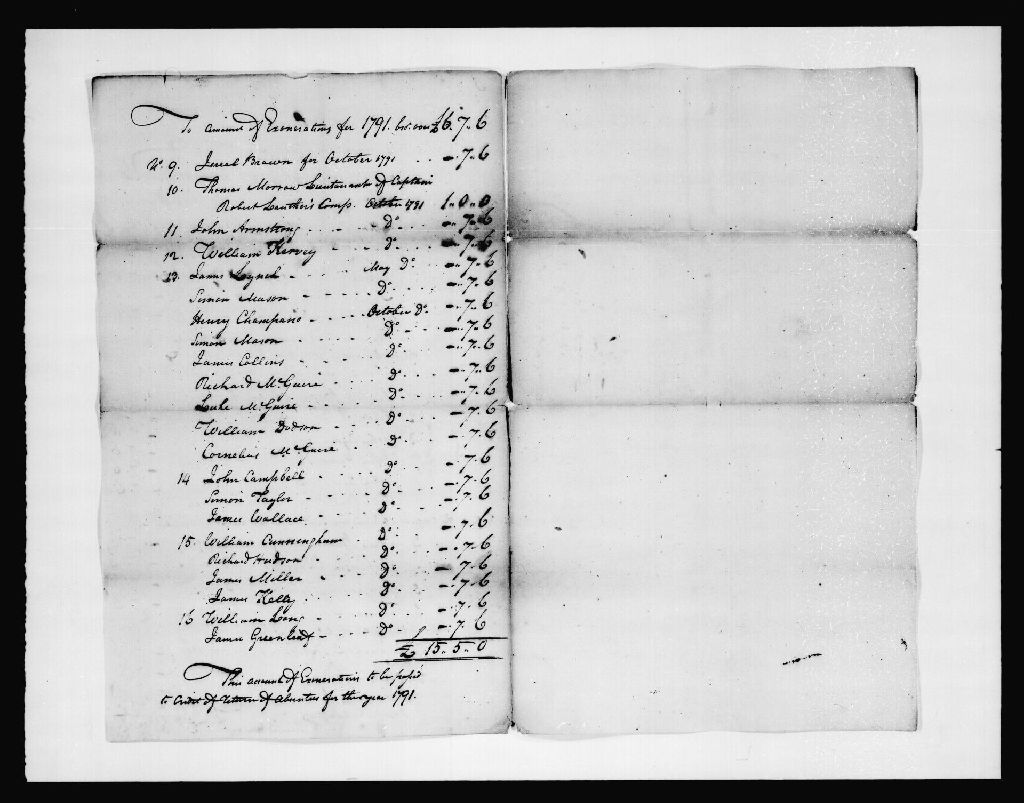 To amount of Exonerations for 1791. bro. over £6.7.6
No. 9. Jared Brown for October 1791 - .. 7.. 6
10. Thomas Morrow Lieutenants of Captain
Robert Comp. October 1791 1.. 0.. 0
11. John Armstrong - - - - Do - .. 7.. 6
12. William Kirvey - - Do - .. 7.. 6
13. James Lynch - - - May Do - .. 7.. 6
Simon Mason - - - - Do - .. 7.. 6
Henry Champain - - - October Do - .. 7.. 6
Simon Mason - - - Do - .. 7.. 6
James Collins - - - Do - .. 7.. 6
Richard McGuire - - Do - .. 7.. 6
Luke McGuire - - - Do - .. 7.. 6
William Dodson - - Do - .. 7.. 6
Cornelius McGuire - - Do - .. 7.. 6
14 John Campbell - - - Do - .. 7.. 6
Simon Taylor - - - Do - .. 7.. 6
James Wallace - - - Do - .. 7.. 6
15. William Cunningham - Do - .. 7.. 6
Richard Hudson - - Do - .. 7.. 6
James Miller - - - Do - .. 7.. 6
James Kelly - - - Do - .. 7.. 6
16 William Long - - - Do - .. 7.. 6
James Greenleaf - - - Do - .. 7.. 6
£ 15.. 5.. 0
This amount of Exonerations to be pass'd
to Credit of return of absentees for the year 1791.